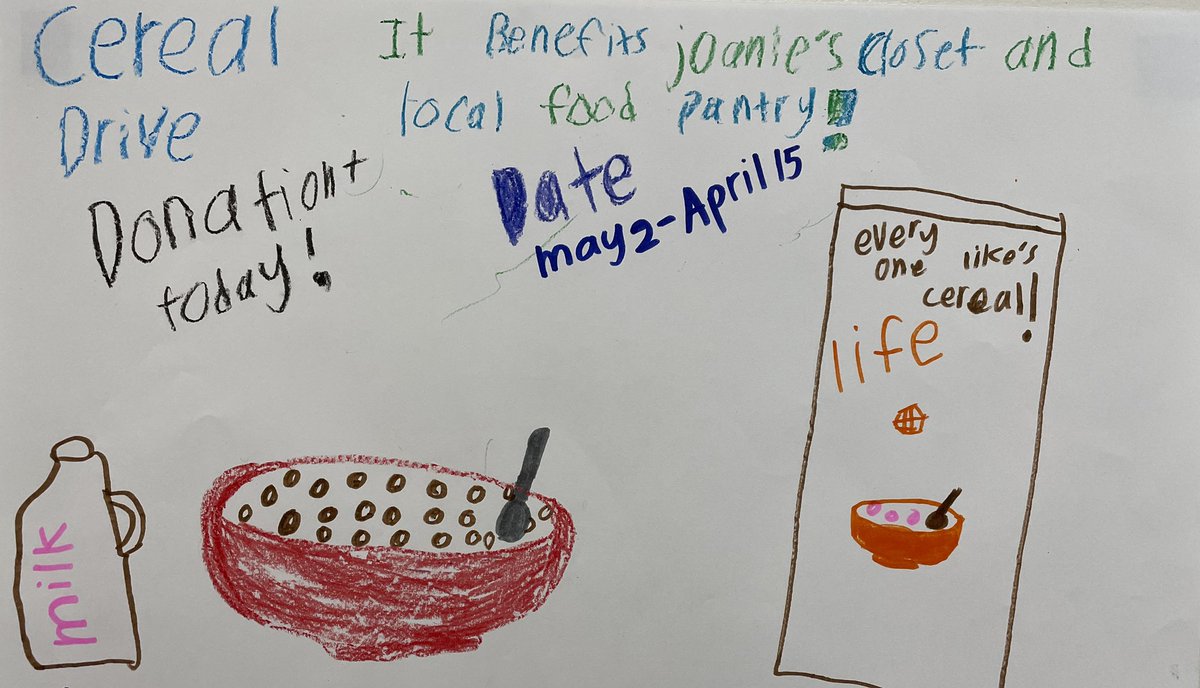 Cereal
Drive
It Benefits joanie's closet and
local food pantry!
Donation+
today!
Date
may 2-April 15
every
one like's
cereal!
life
milk